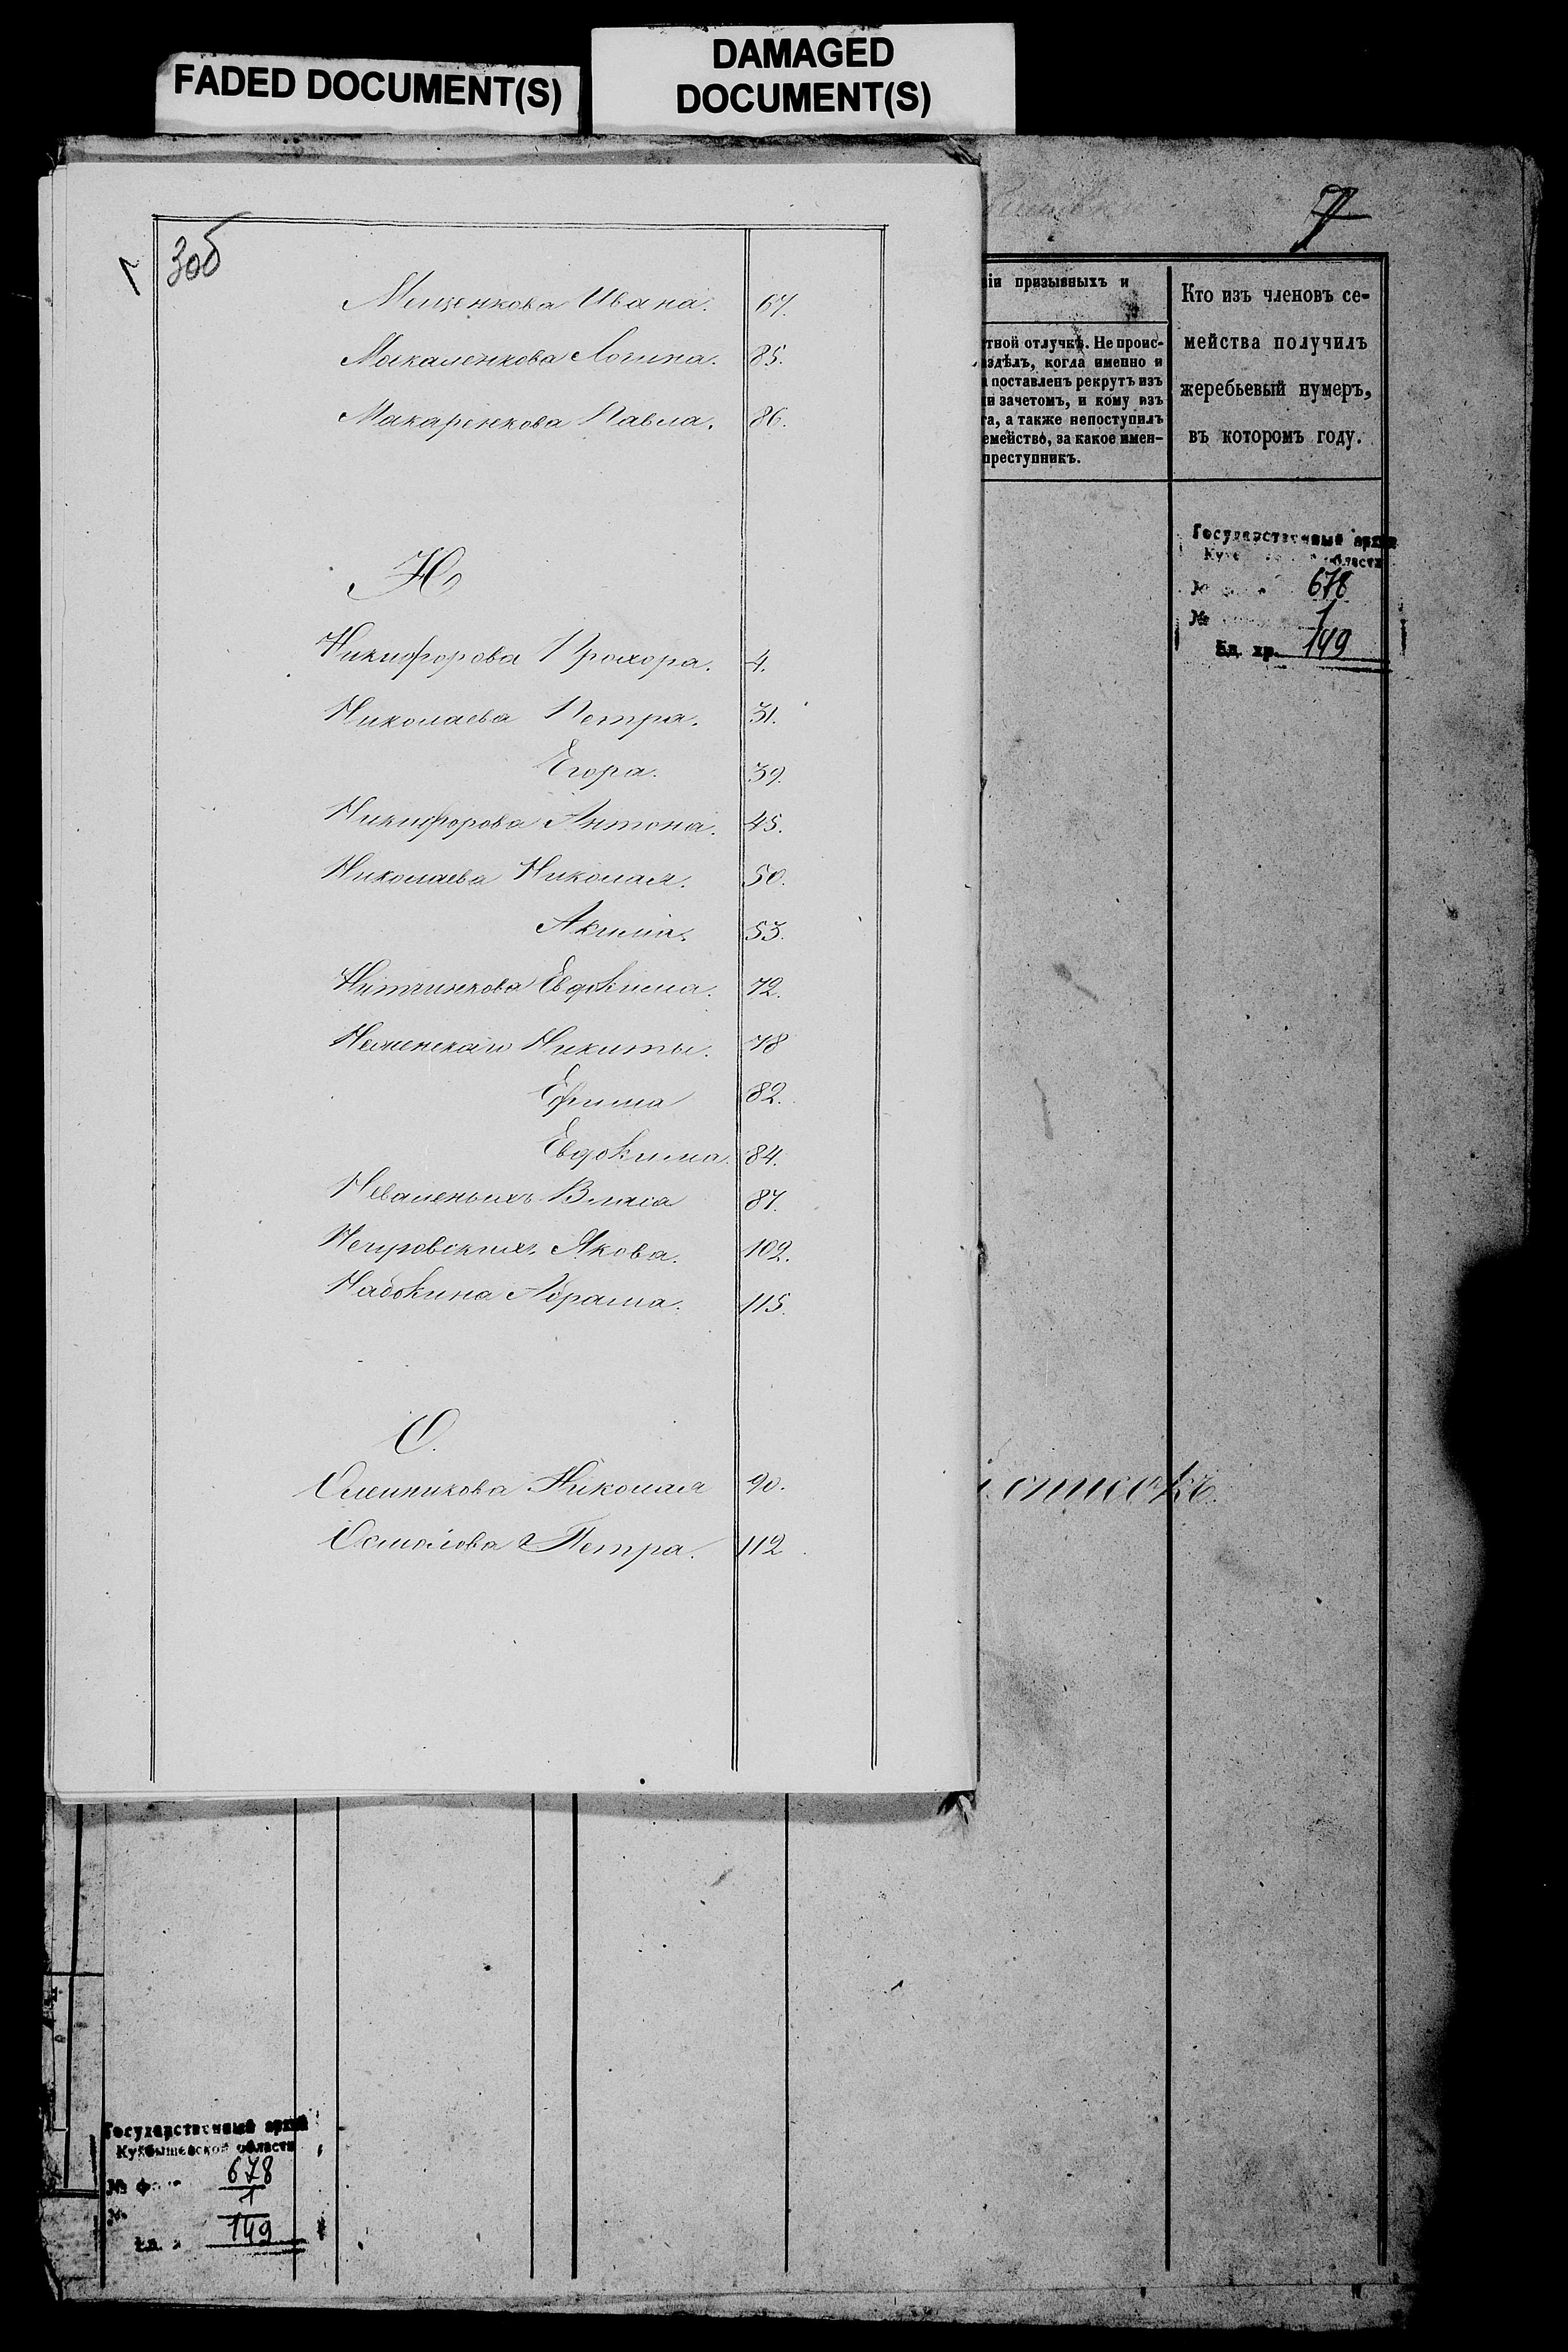 FADED DOCUMENT(S)
DAMAGED
DOCUMENT(S)
3об
Мищенкова Ивана. 67.
Макаленкова Логина. 85.
Макаренкова Павла. 86.
Н
Никифорова Прохора. 4.
Николаева Петра. 31.
Егора. 39.
Никифорова Антона. 45.
Николаева Николая. 50.
Акима. 53.
Евдокима. 72.
Никиты. 78
Ефима 82.
Евдокима. 84.
Власа 87.
Якова. 102.
Набокина Абрама. 115.
О.
Николая 90.
Осмолова Петра. 112
7
ніи призывныхъ и
тной отлучкѣ. Не проис-
здѣлъ, когда именно и
поставленъ рекрутъ изъ
и зачетомъ, и кому изъ
та, а также непоступилъ
емейство, за какое имен-
преступникъ.
Кто изъ членовъ се-
мейства получилъ
жеребьевый нумеръ,
въ которомъ году.
Государственный архив
области
№ 678
№ 1
Ед. хр. 149
Государственный архив
Куйбышевской области
№ ф. 678
№ 1
Ед. 149